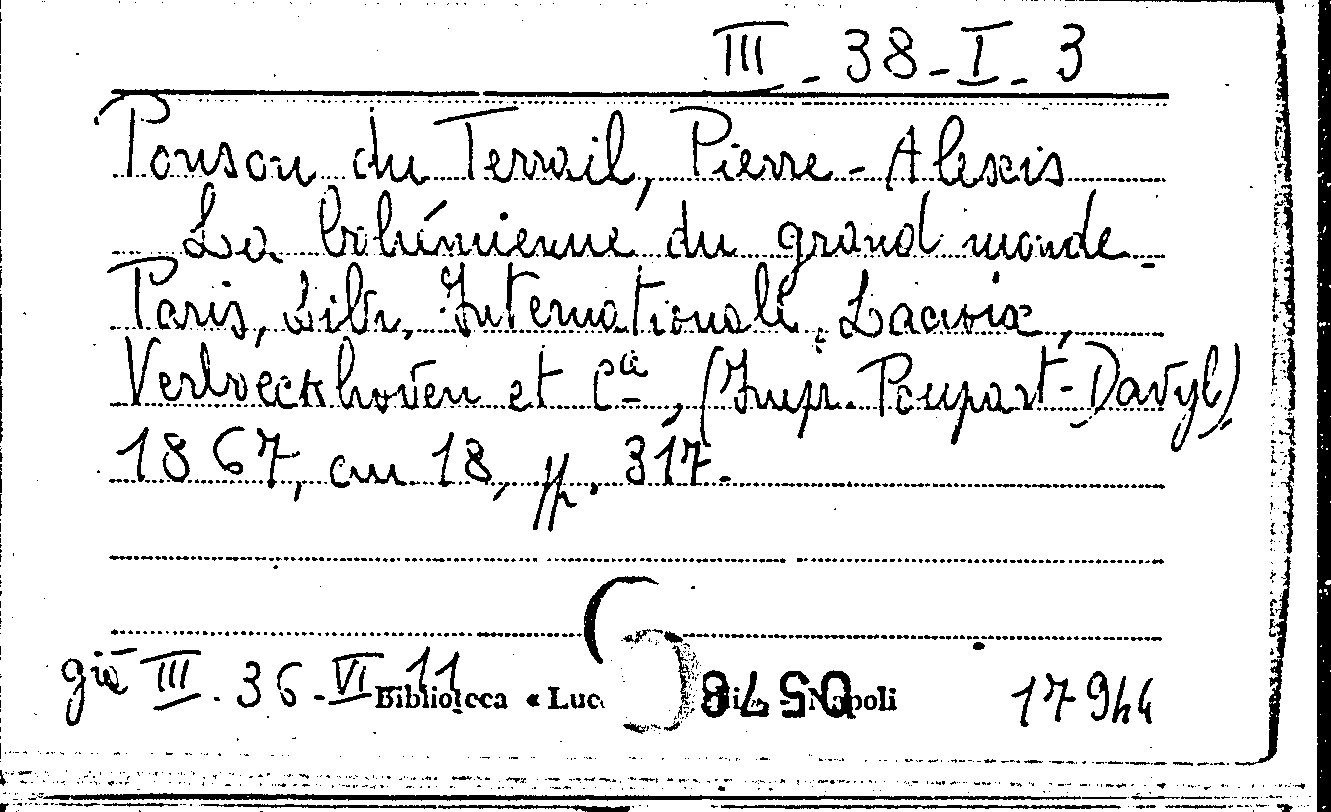 III - 38 - I - 3
Ponson du Terrail, Pierre-Alexis
La bohémienne du grand monde.
Paris, Libr. Internationale, Lacroix,
Verboeckhoven et Cie, (Impr. Poupart-Davyl)
1867, in 18, pp. 317.
già III. 36 - VI - 11 Biblioteca « Luc Napoli 17944